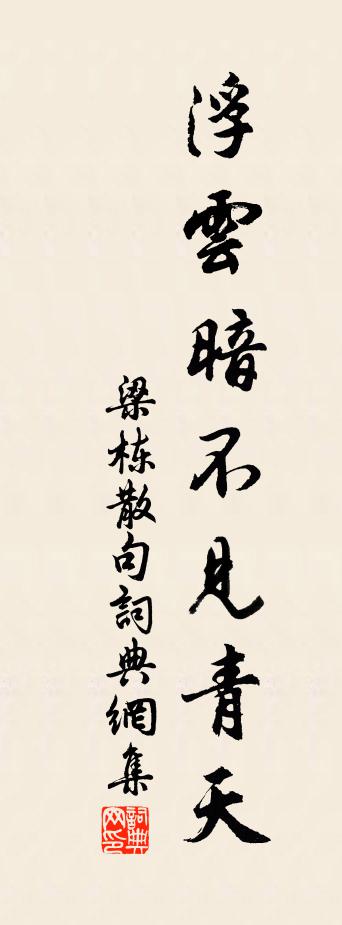 浮雲暗不見青天
梁栋散句詞典網集
詞典网印